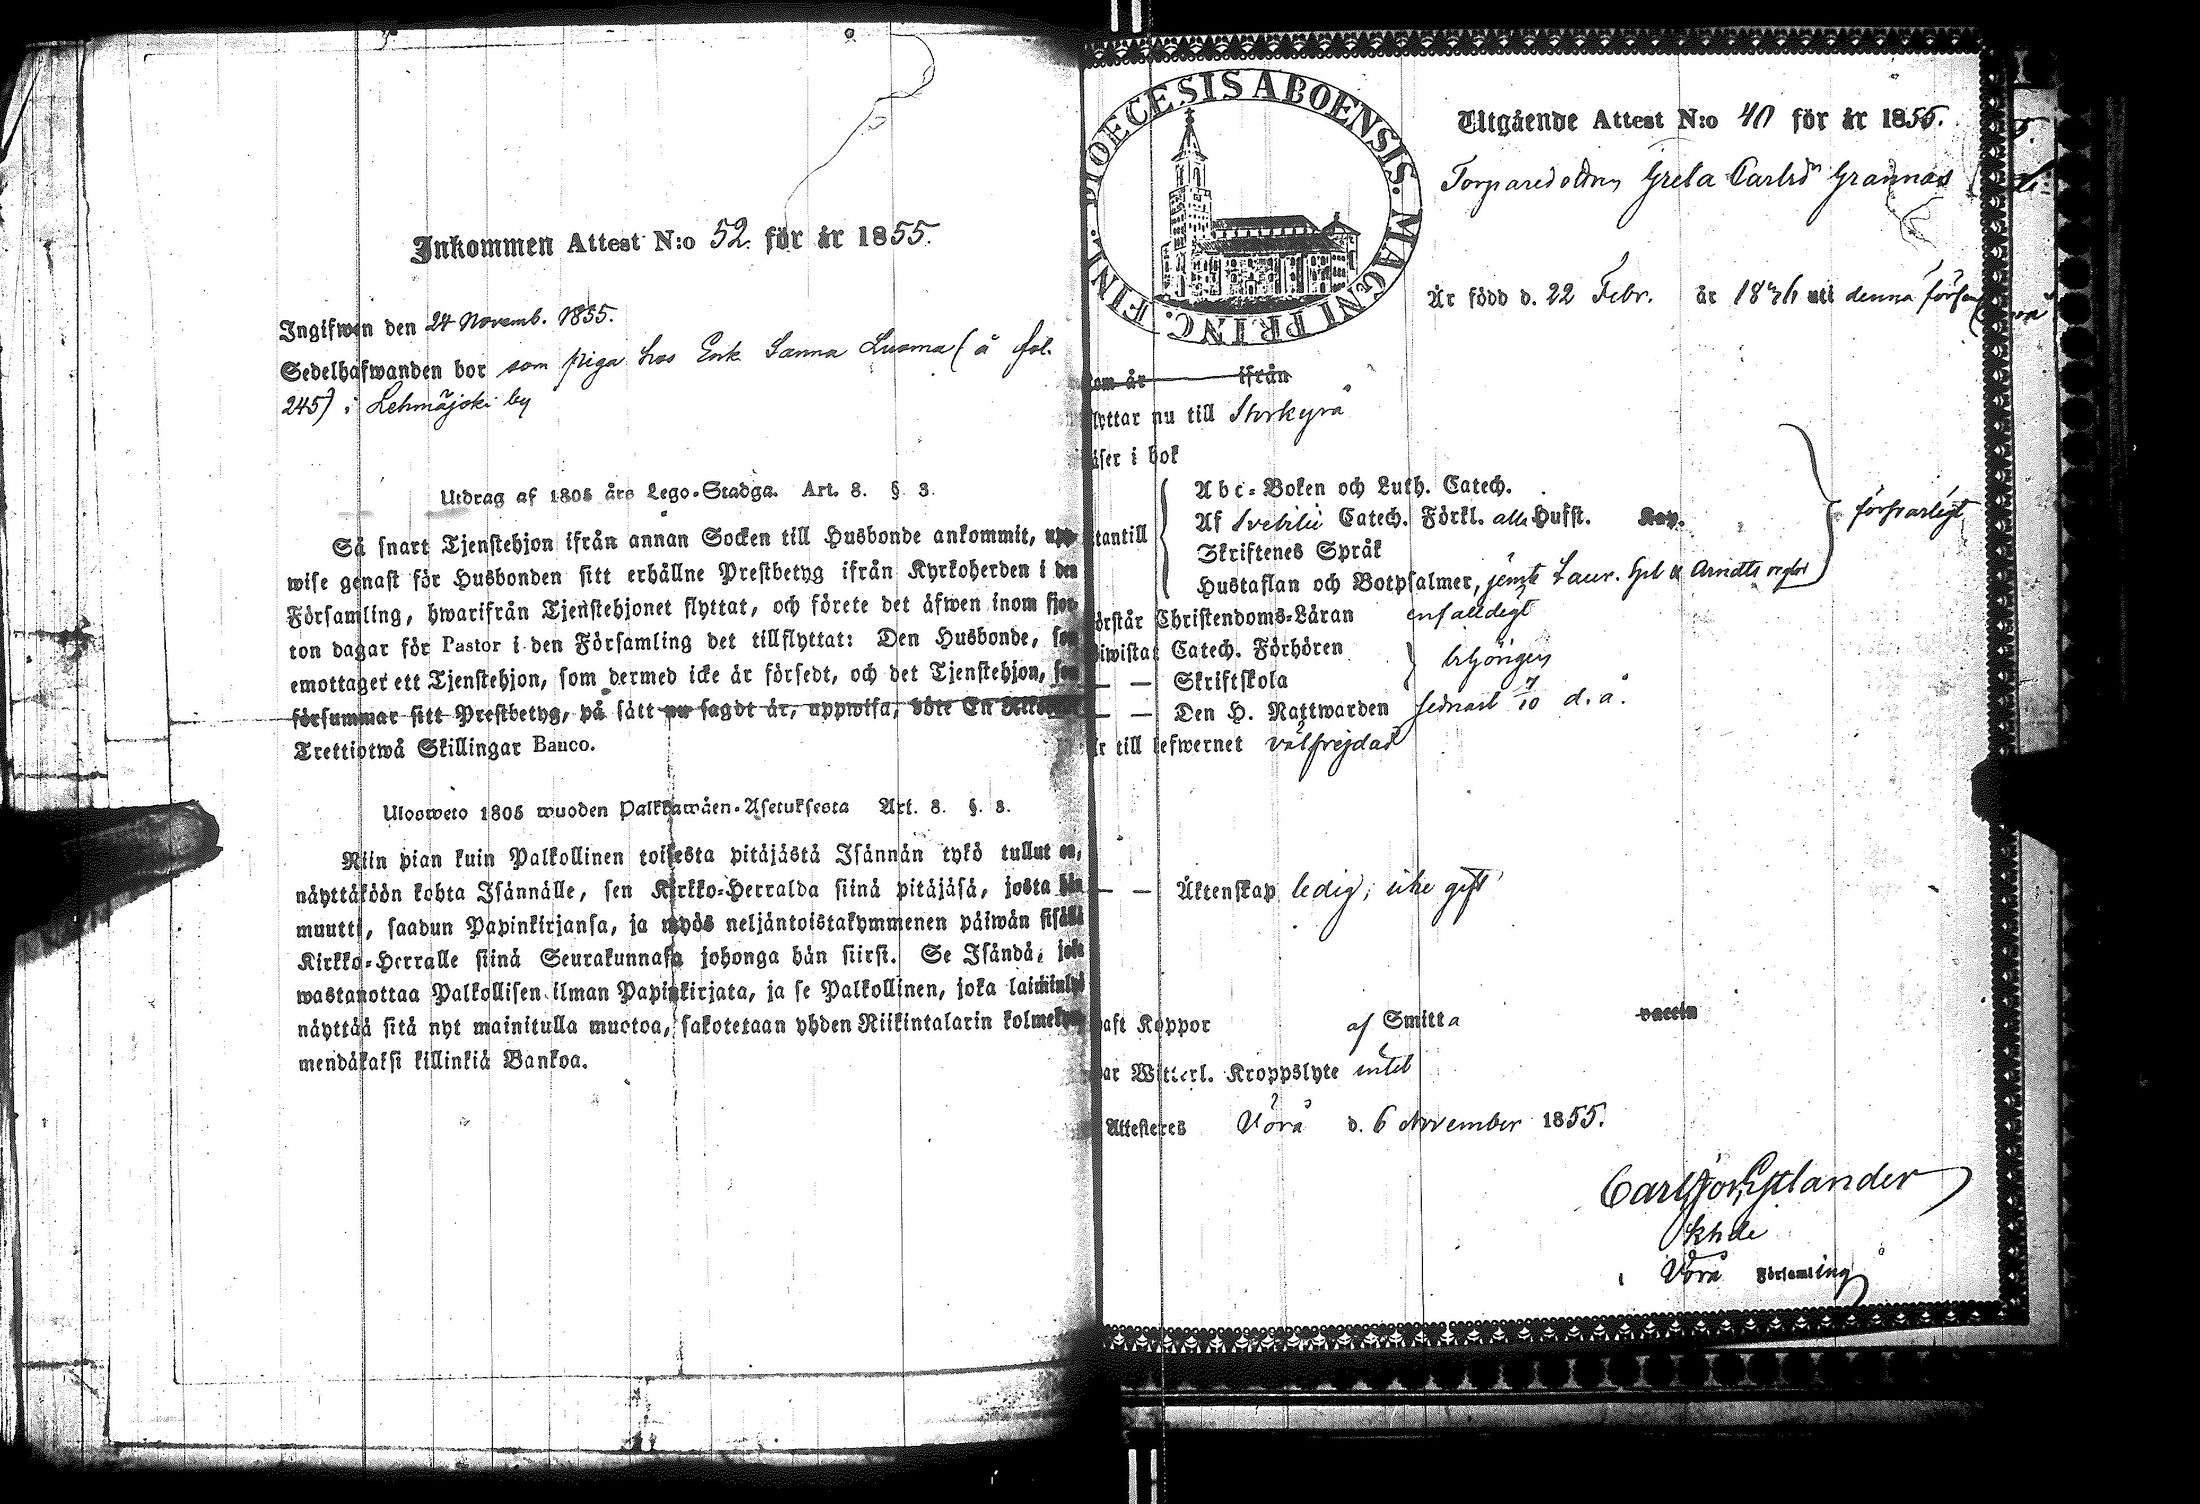 Inkommen Attest N:o 52. för år 1855.
Ingifwen den 24 Novemb. 1855.
Sedelhafwanden bor som piga hos Enk Sanna Luoma (å fol.
245) i Lehmäjoki by
Utdrag af 1805 års Lego-Stadga. Art. 8. §. 3.
Så snart Tjenstehjon ifrån annan Socken till Husbonde ankommit, upp-
wise genast för Husbonden sitt erhållne Prestbetyg ifrån Kyrkoherden i den
Församling, hwarifrån Tjenstehjonet flyttat, och förete det äfwen inom fjor-
ton dagar för Pastor i den Församling det tillflyttat: Den Husbonde, som
emottaget ett Tjenstehjon, som dermed icke är försedt, och det Tjenstehjon, som
försummar sitt Prestbetyg, på sätt nu sagdt är, uppwisa, böte En
Trettiotwå Skillingar Banco.
Ulosweto 1805 wuoden Palkkawäen-Asetuksesta Art. 8. §. 3.
Niin pian kuin Palkollinen toisesta pitäjästä Isännän tykö tullut on,
näyttäköön kohta Isännälle, sen Kirkko-Herralda siinä pitäjäsä, josta hän
muutti, saadun Papinkirjansa, ja myös neljäntoistakymmenen päiwän sisällä
Kirkko-Herralle siinä Seurakunnasa johonga hän siirsi. Se Isändä, joka
wastanottaa Palkollisen ilman Papinkirjata, ja se Palkollinen, joka laiminlyö
näyttää sitä nyt mainitulla muotoa, sakotetaan yhden Riikintalarin kolmekym-
mendäkaksi killinkiä Bankoa.
DIOECESIS ABOENSIS. MAGNI PRINC. FINL.
Utgående Attest N:o 40 för år 1855.
Greta Carlsdr Grannas
Är född d. 22 Febr. år 1836 uti denna förs
om år ifrån
lyttar nu till Storkyro
äser i bok
Abc-Boken och Luth. Catech.
Af Svebilii Catech. Förkl. alla Hufst. Kap.
tantill
Skriftenes Språk
Hustaflan och Botpsalmer, jemte Laur. Arndts
försvarligt
örstår Christendoms-Läran enfaldigt
iwistat Catech. Förhören
behörigen
— — Skriftskola
— — Den H. Nattwarden sednast 7/10 d. å.
r till lefwernet välfrejdad
— — Äktenskap ledig, icke gift
haft Koppor af Smitta vaccin
ar Witterl. Kroppslyte intet
Attesteres Vörå d. 6 November 1855.
Carl
Khde
i Vörå Församling